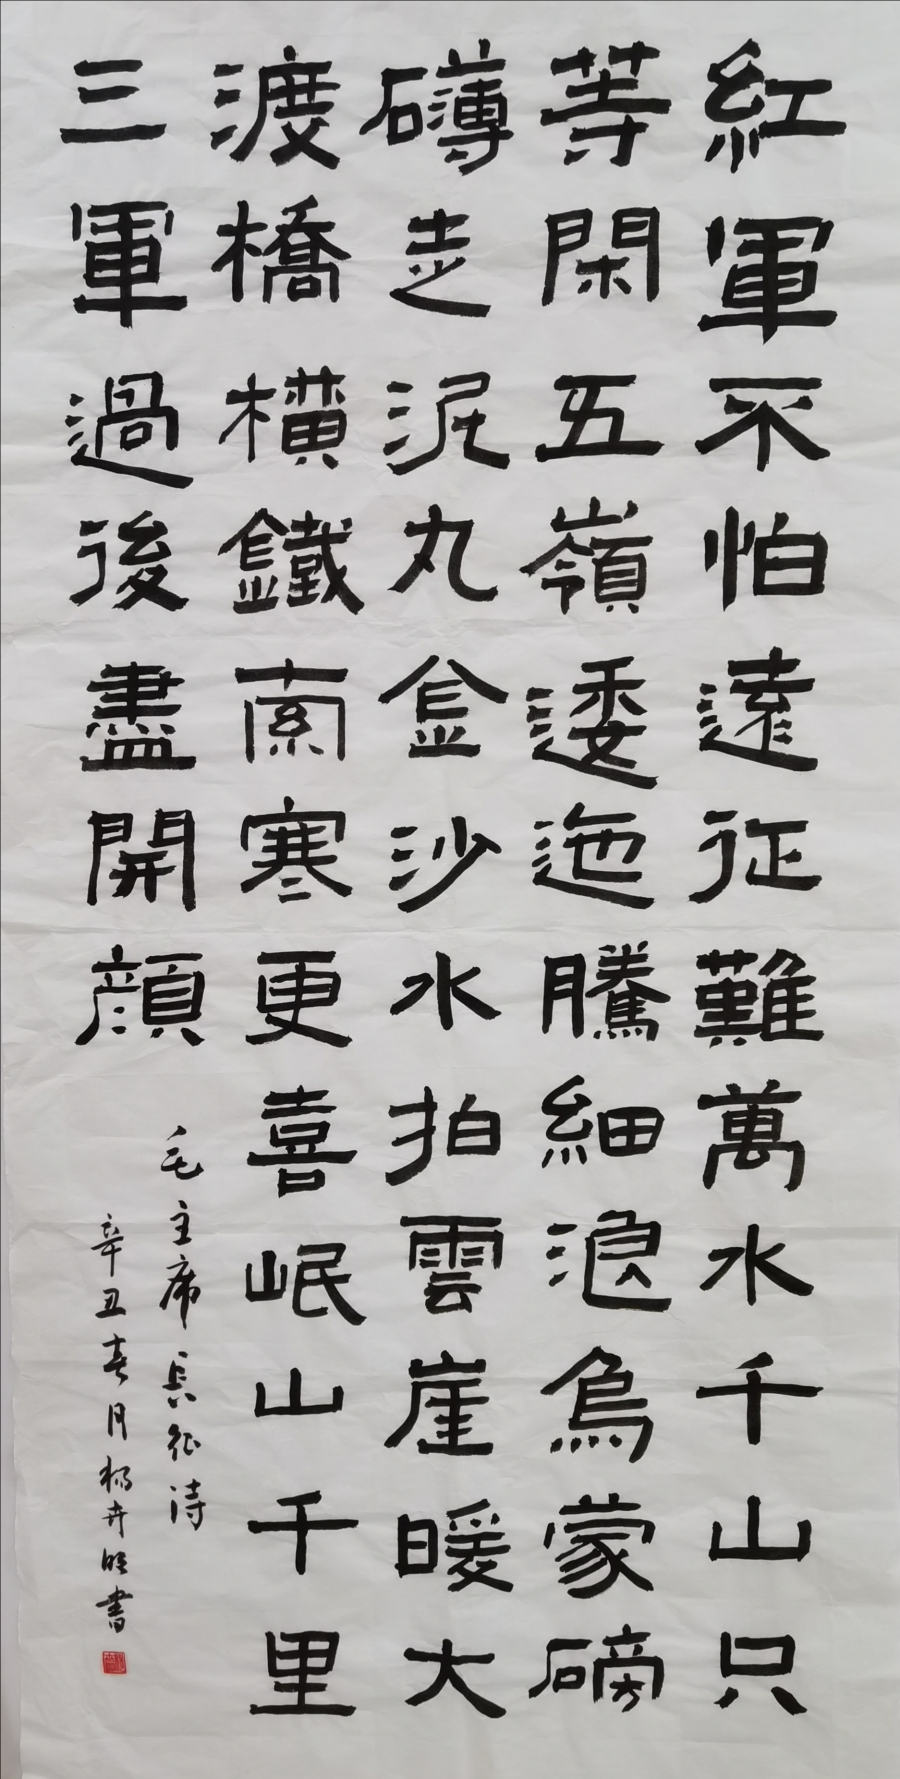 紅軍不怕遠征難萬水千山只
等閑五嶺逶迤騰細浪烏蒙磅
礴走泥丸金沙水拍雲崖暖大
渡橋橫鐵索寒更喜岷山千里
三軍過後盡開顏
毛主席長征诗
辛丑春月楊卉明書